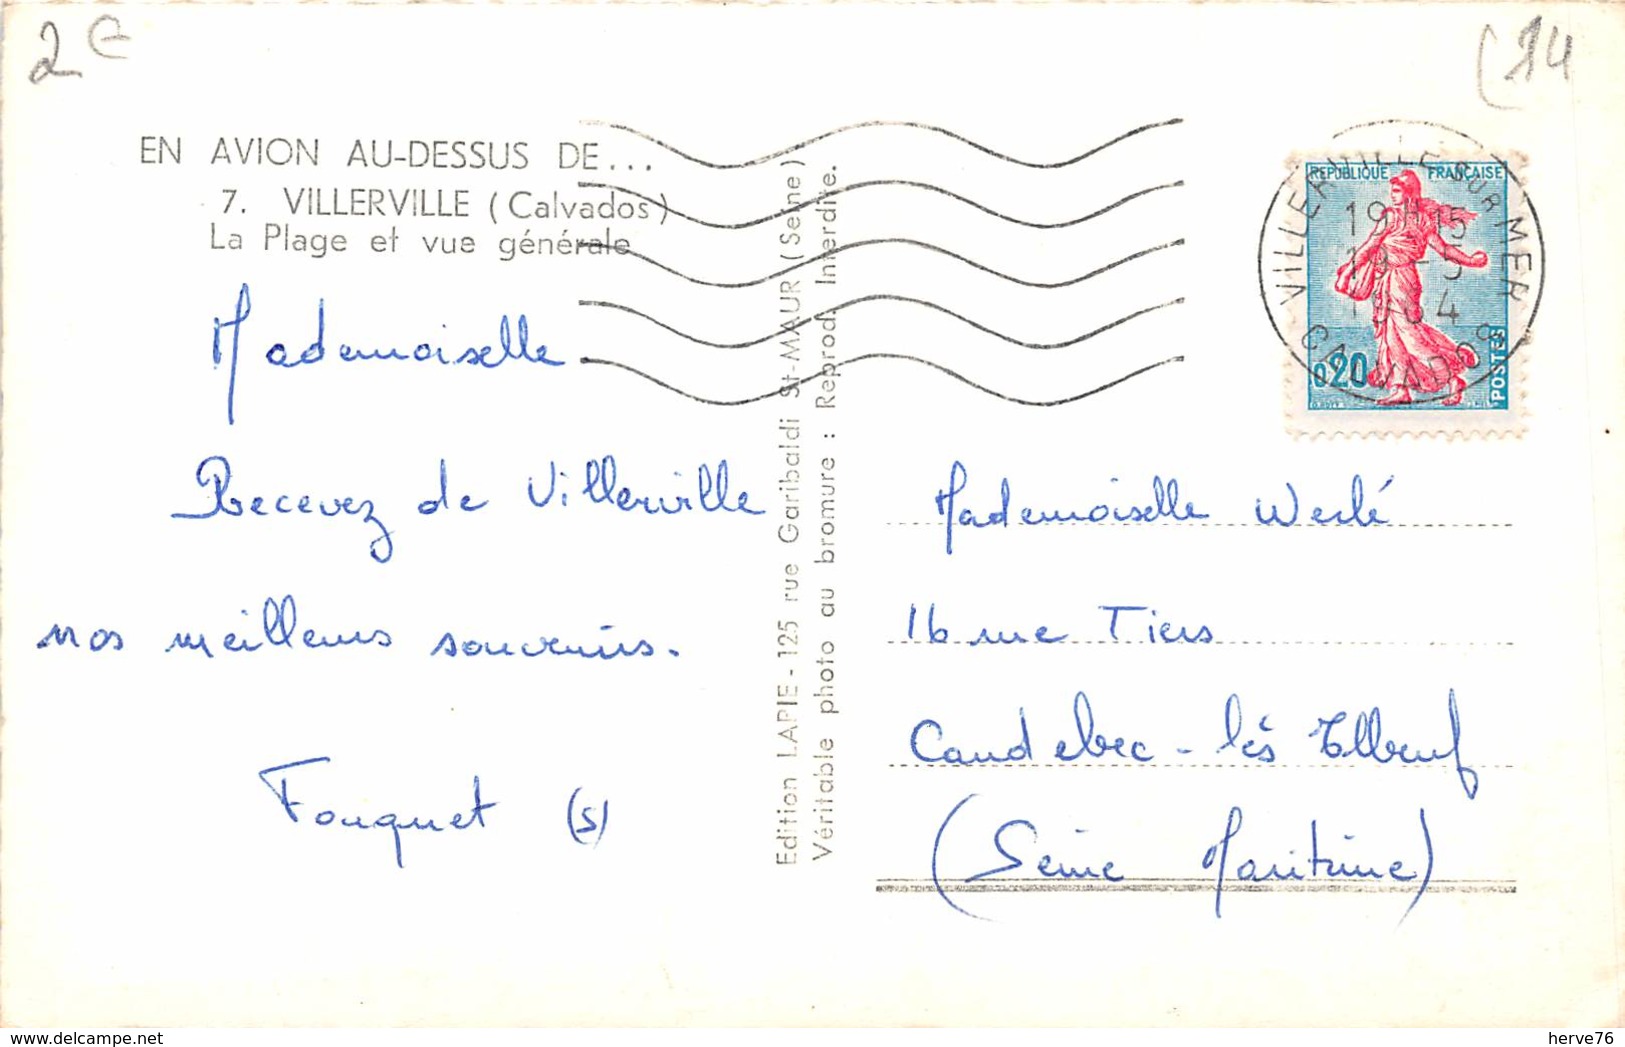 2 €
(14
EN AVION AU-DESSUS DE...
7. VILLERVILLE (Calvados)
La Plage et vue générale
Mademoiselle
Recevez de Villerville
nos meilleurs souvenirs.
Fouquet (S)
Edition LAPIE - 125 rue Garibaldi St-MAUR (Seine)
Véritable photo au bromure : Reprod. Interdite.
REPUBLIQUE FRANÇAISE
0,20
POSTES
VILLERVILLE SUR MER
19H15
19-5
CALVADOS
Mademoiselle Werlé
16 rue Tiers
Caudebec-lès Elbeuf
(Seine Maritime)
herve76